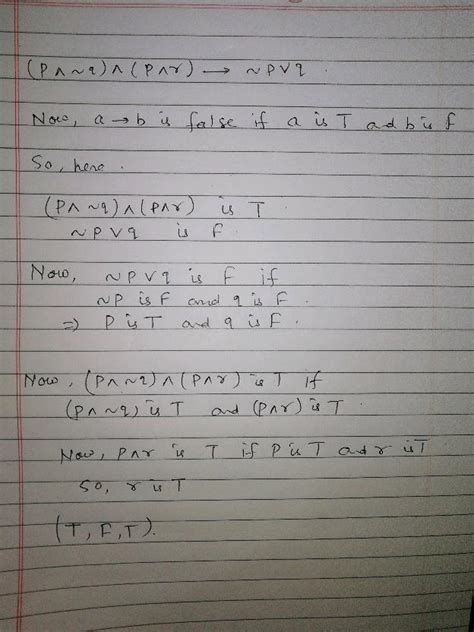 (P∧~q)∧(P∧r) → ~P∨q.
Now, a→b is false if a is T ad b is f
So, here.
(P∧~q)∧(P∧r) is T
~P∨q is F.
Now, ~P∨q is F if
~P is F and q is F.
⇒ P is T and q is F.
Now, (P∧~q)∧(P∧r) is T if
(P∧~q) is T and (P∧r) is T.
Now, P∧r is T if P is T ad r is T
So, r is T
(T, F, T).